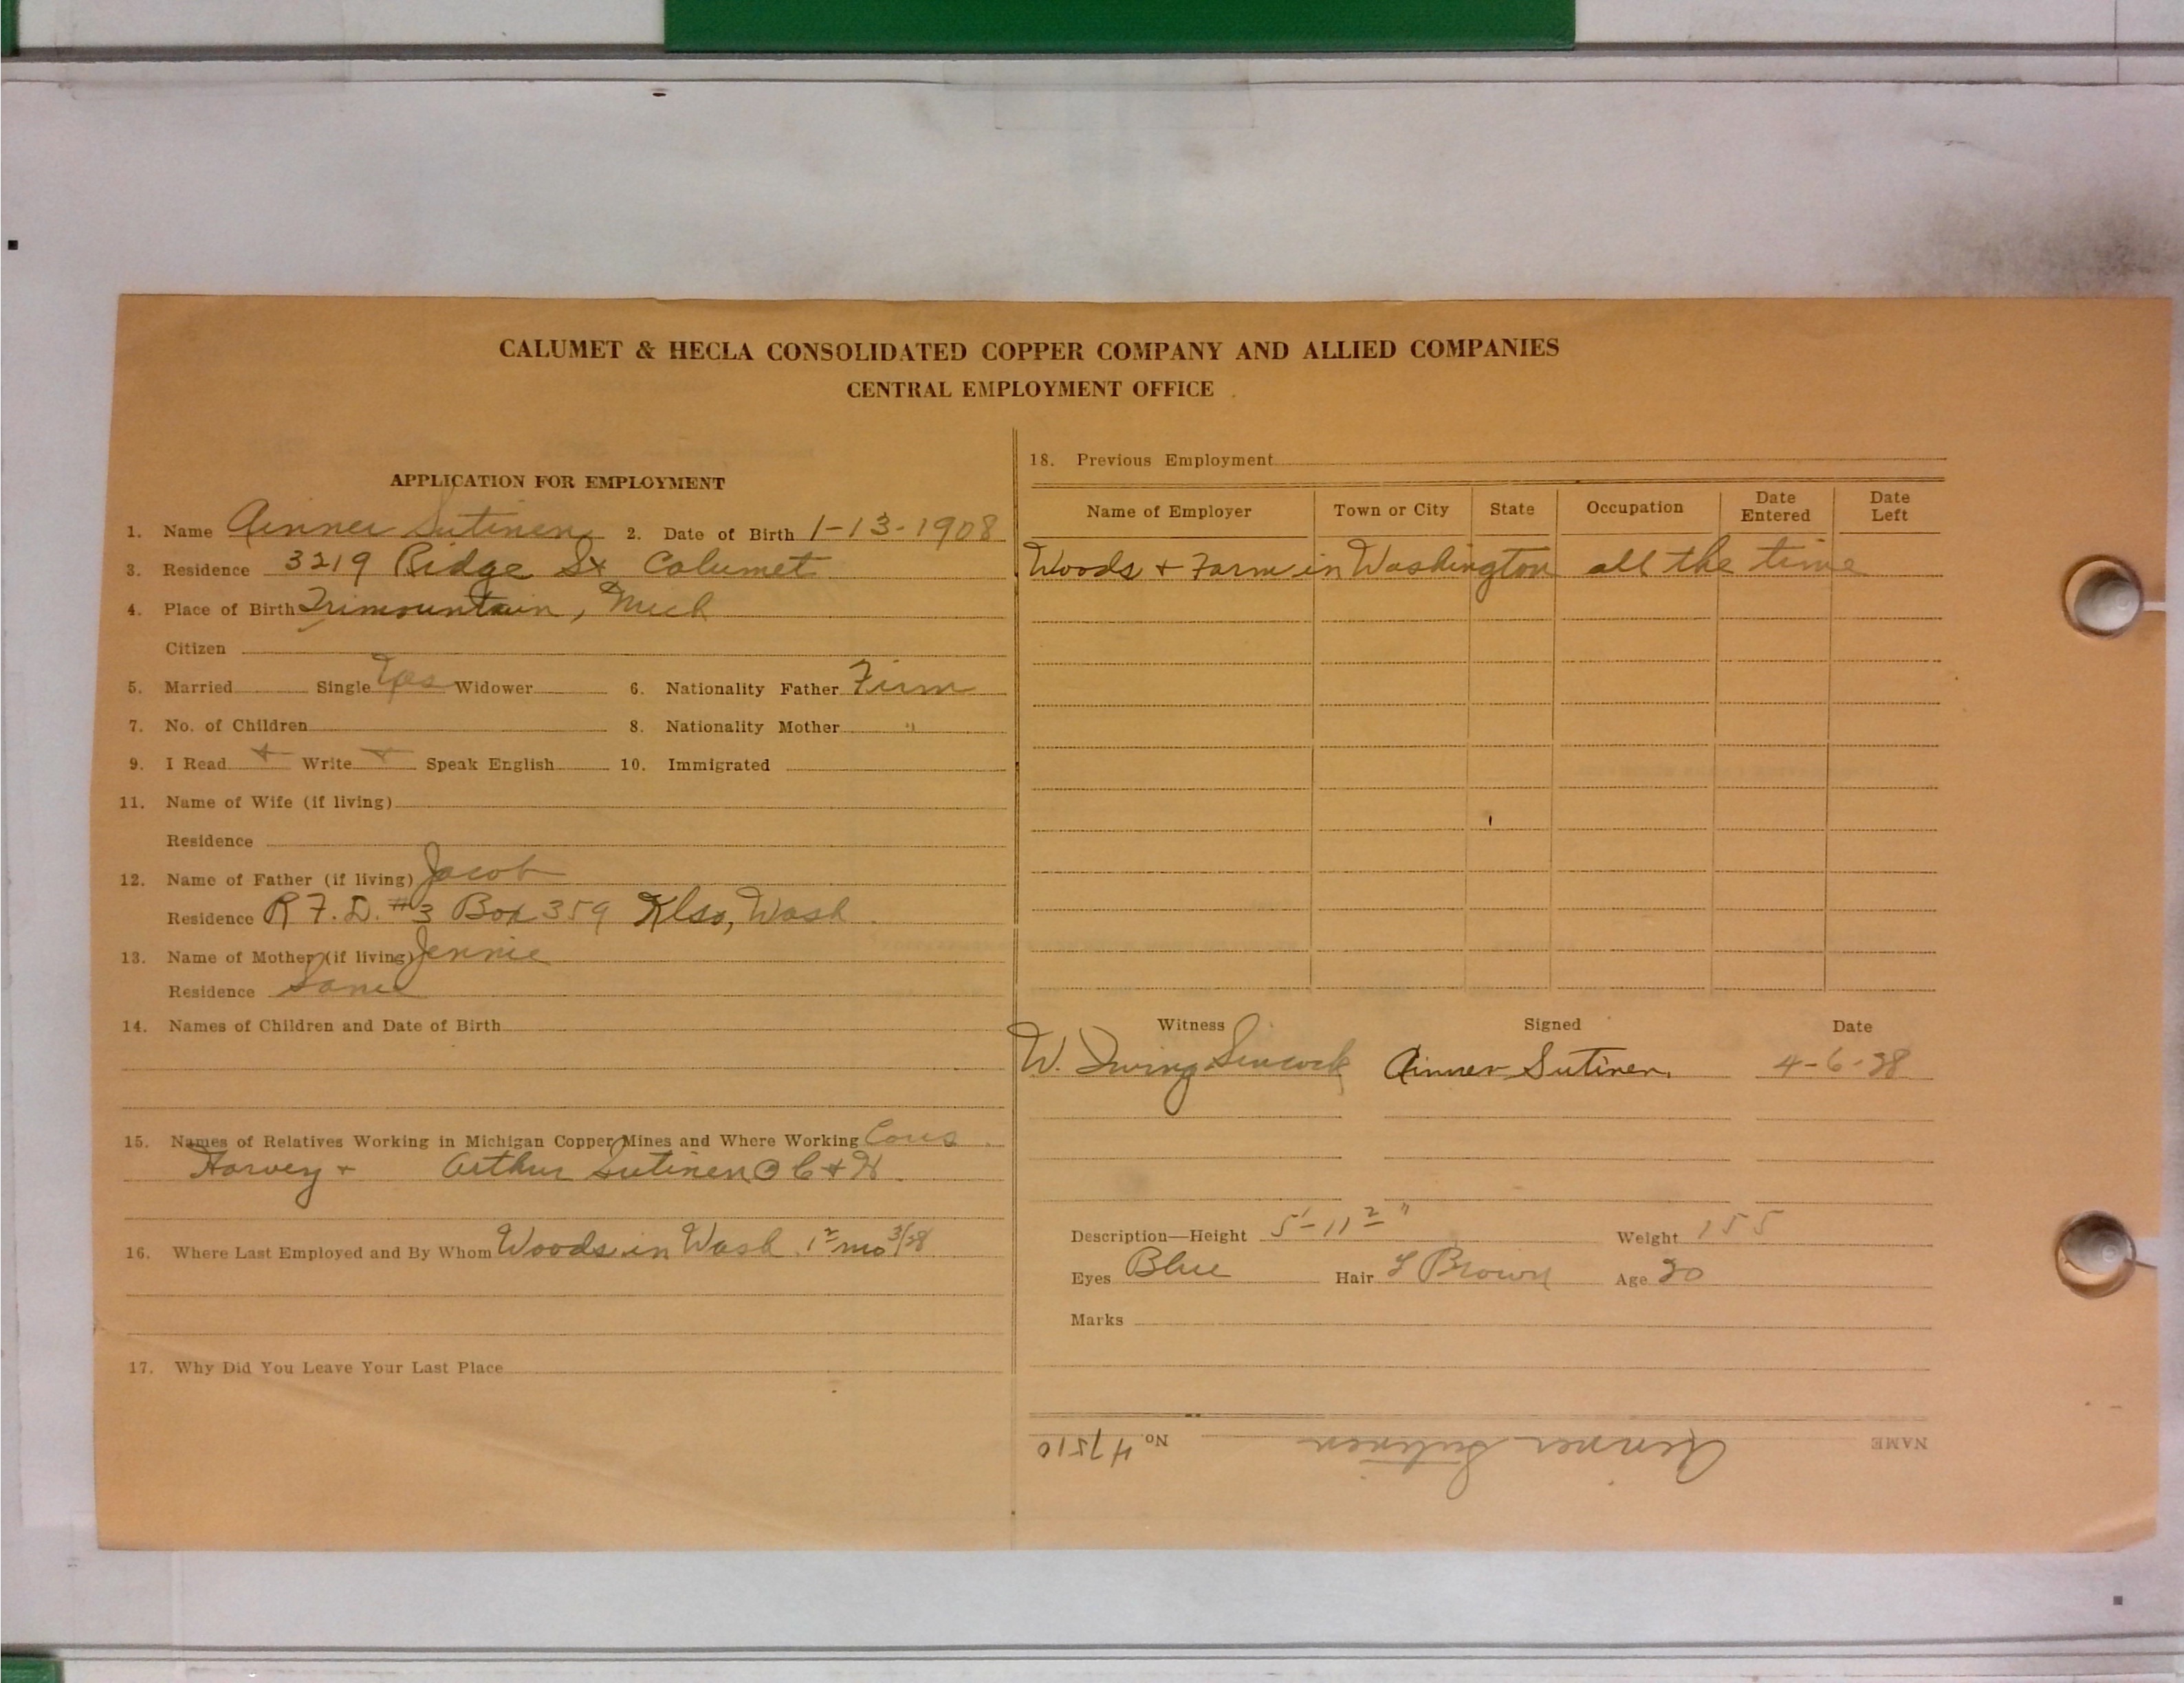 CALUMET & HECLA CONSOLIDATED COPPER COMPANY AND ALLIED COMPANIES
CENTRAL EMPLOYMENT OFFICE
APPLICATION FOR EMPLOYMENT
1. Name Ainner Sutinen 2. Date of Birth 1-13-1908
3. Residence 3219 Ridge St Calumet
4. Place of Birth Trimountain, Mich
Citizen
5. Married Single Yes Widower 6. Nationality Father Finn
7. No. of Children 8. Nationality Mother "
9. I Read + Write + Speak English 10. Immigrated
11. Name of Wife (if living)
Residence
12. Name of Father (if living) Jacob
Residence R F. D. #3 Box 359 Klso, Wash.
13. Name of Mother (if living) Jennie
Residence Same
14. Names of Children and Date of Birth
15. Names of Relatives Working in Michigan Copper Mines and Where Working Cous.
Harvey + Arthur Sutinen C + H.
16. Where Last Employed and By Whom Woods in Wash. mo
17. Why Did You Leave Your Last Place
18. Previous Employment
Name of Employer Town or City State Occupation Date Entered Date Left
Woods + Farm in Washington all the time
Witness Signed Date
W. Irving Sincock Ainner Sutinen 4-6-38
Description—Height 5'-11 Weight 155
Eyes Blue Hair L Brown Age 30
Marks
NAME Ainner Sutinen No. 47510